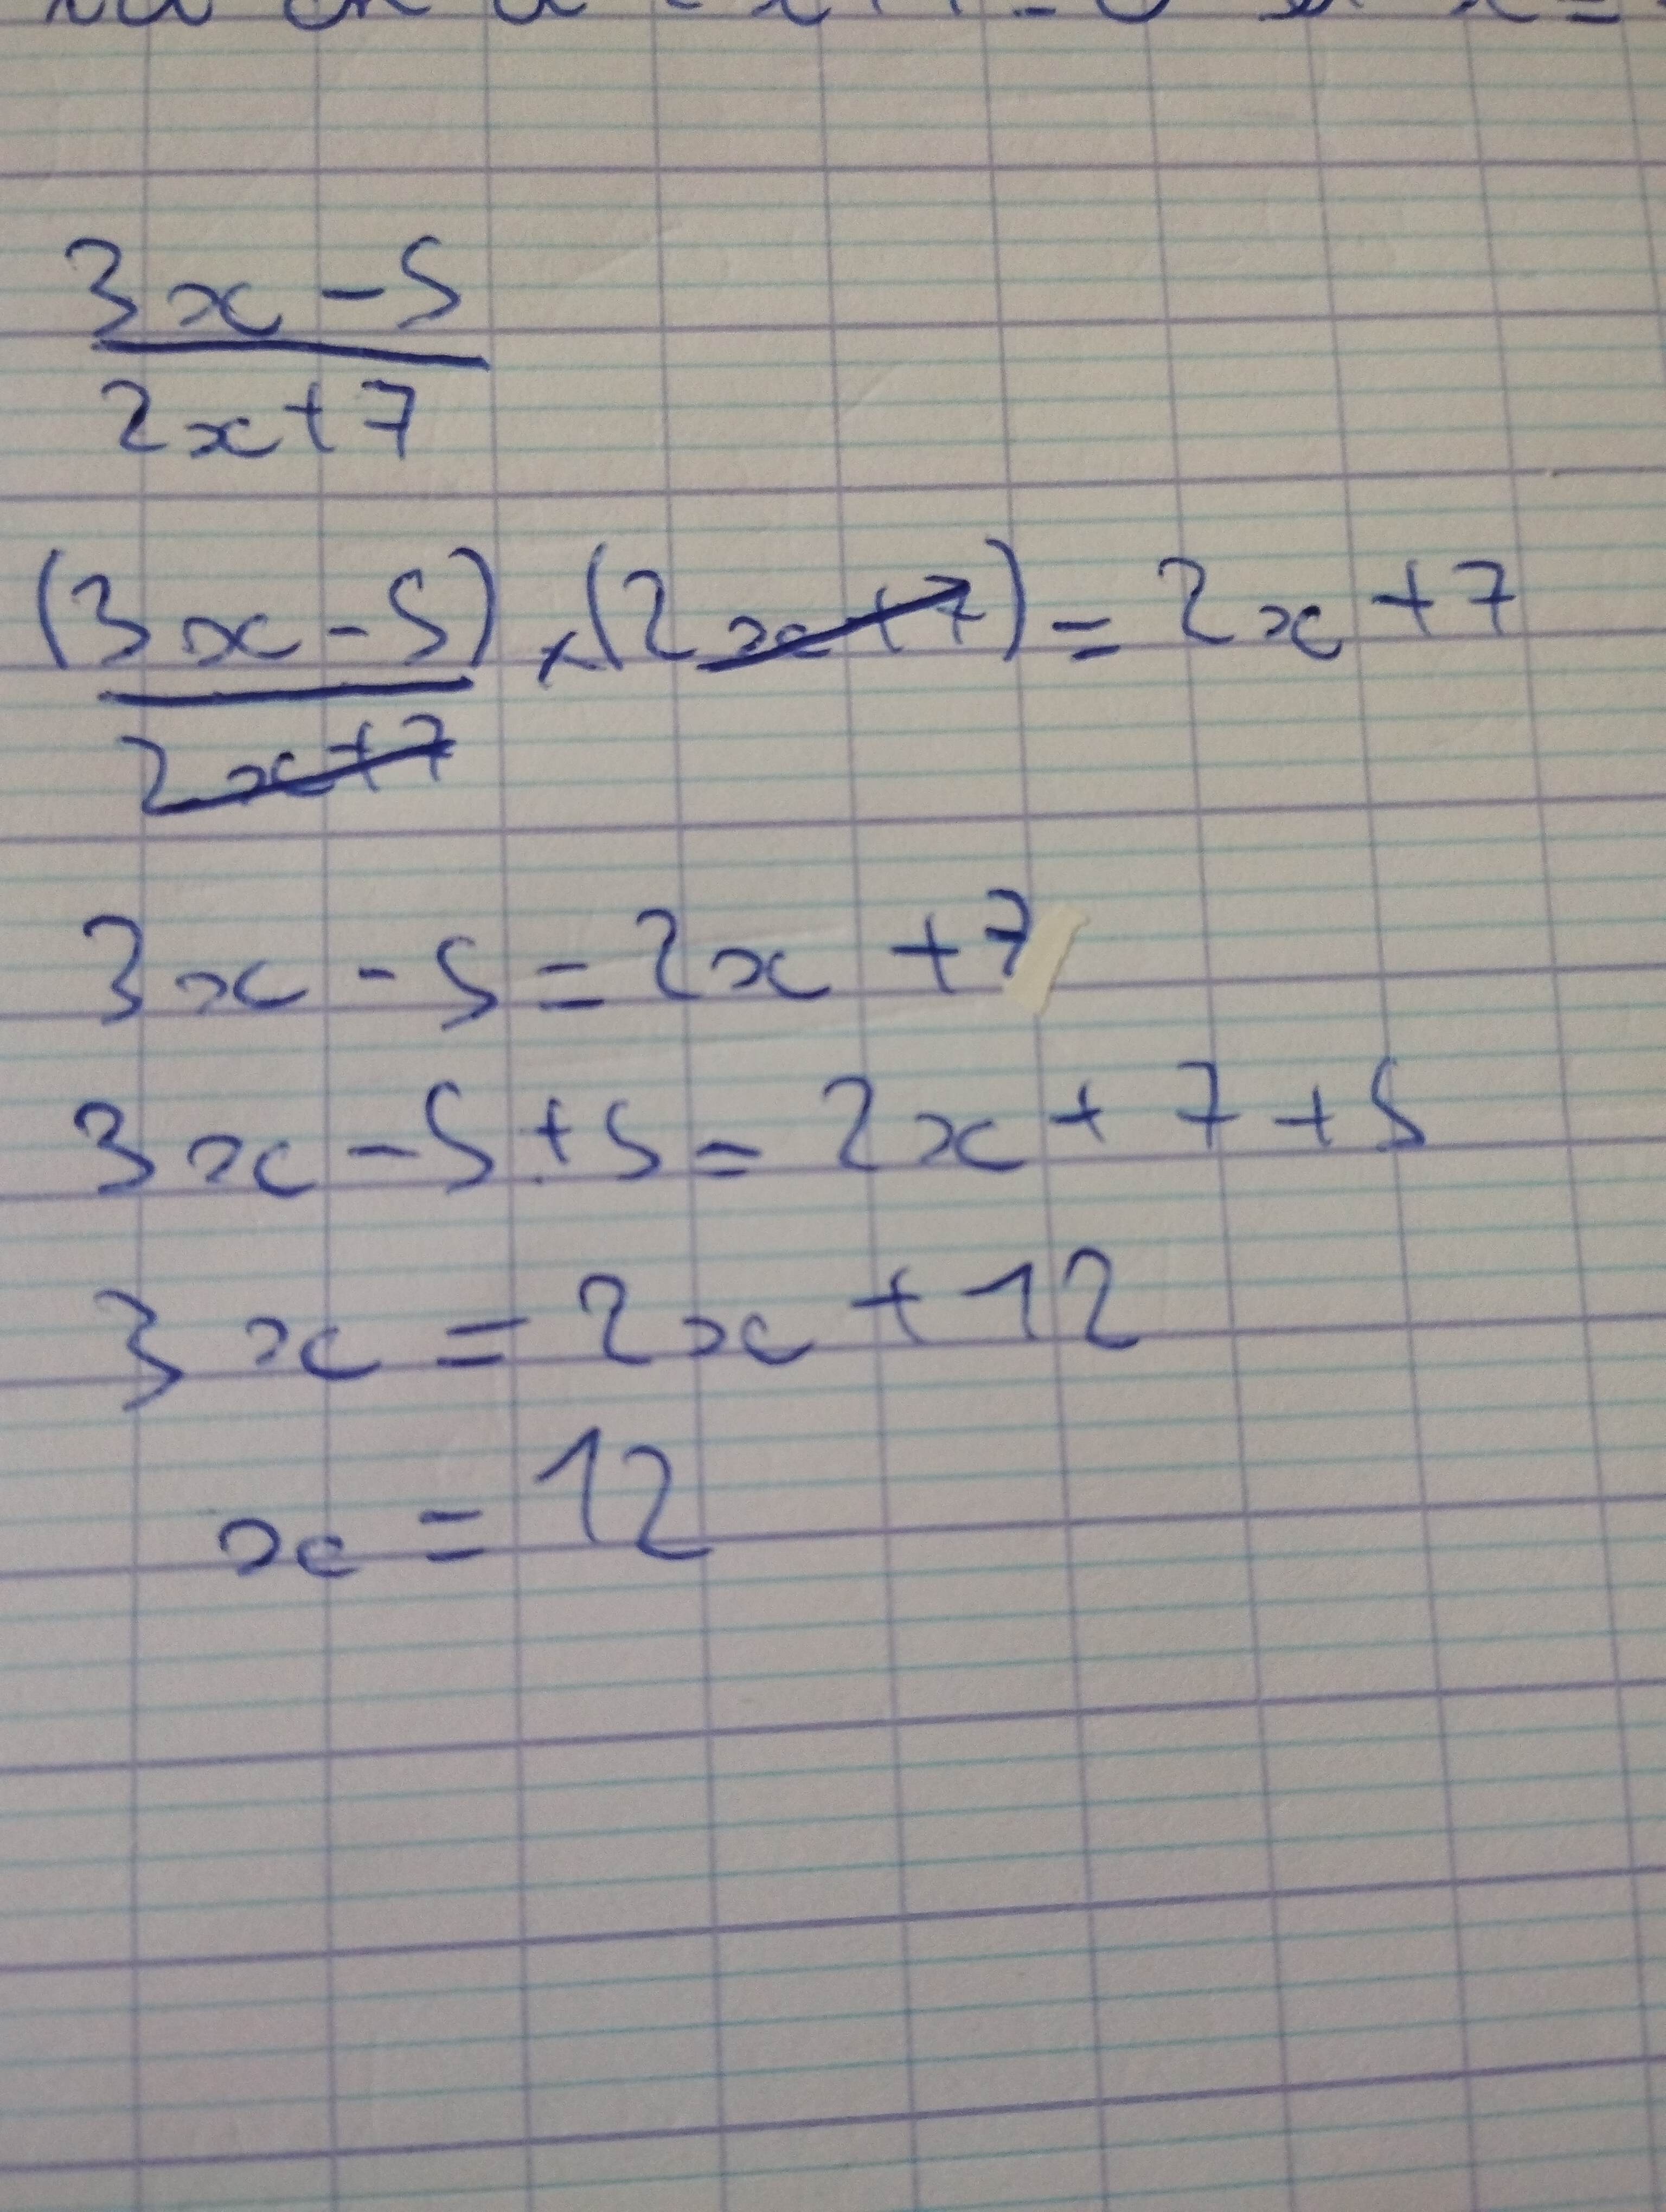 3x - 5
2x + 7
(3x - 5) × (2x + 7) = 2x + 7
2x + 7
3x - 5 = 2x + 7
3x - 5 + 5 = 2x + 7 + 5
3x = 2x + 12
x = 12